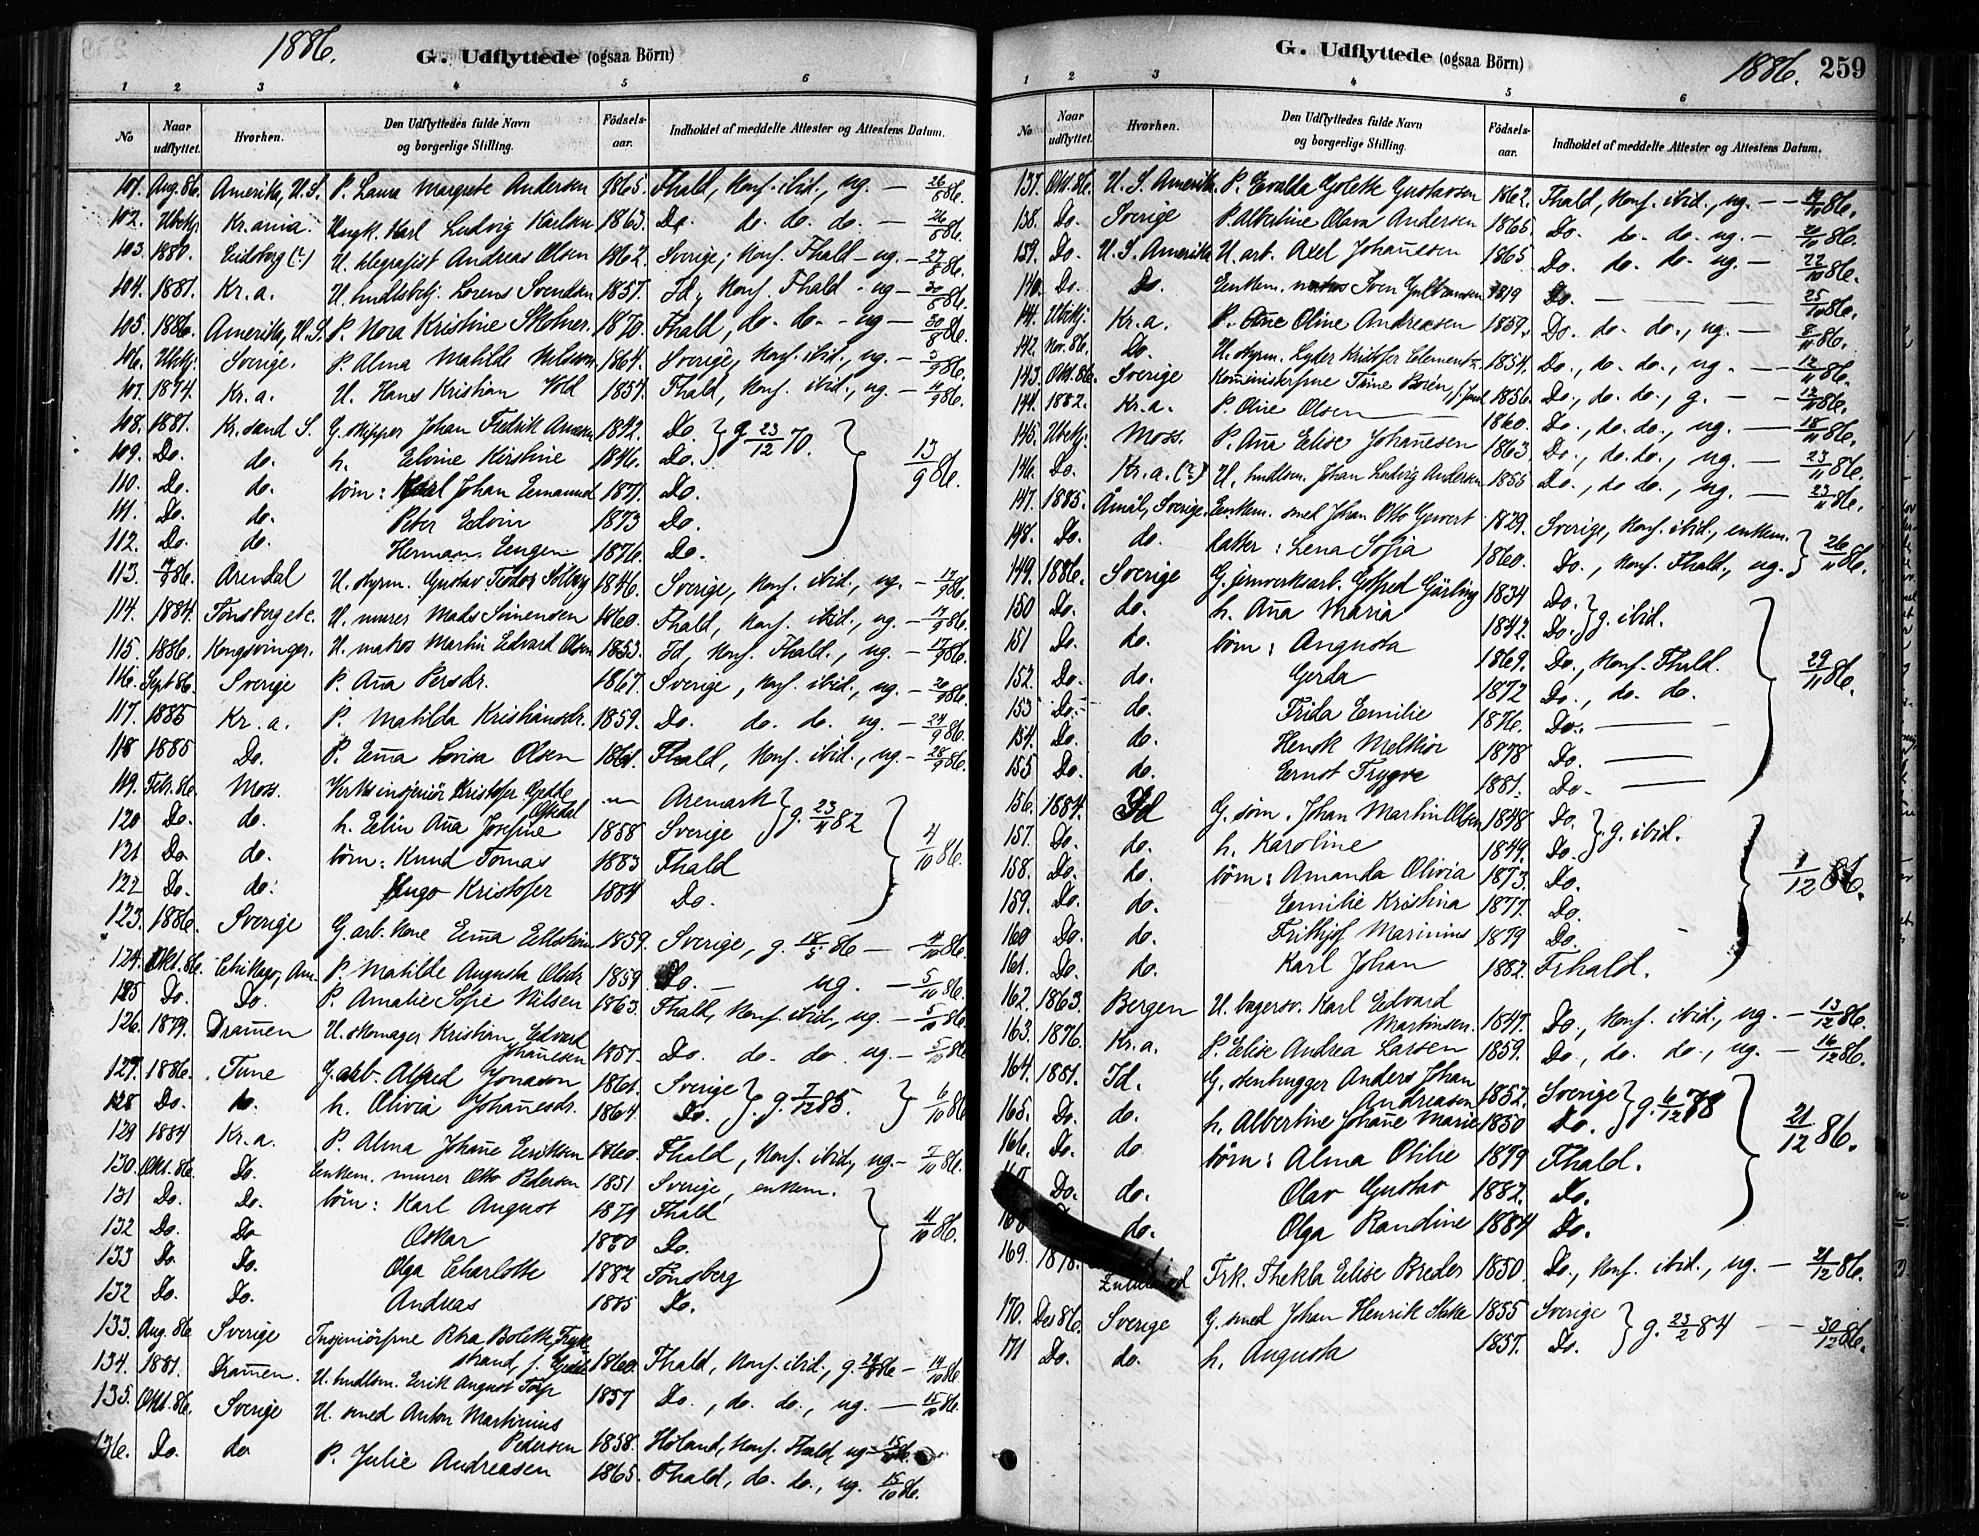 1886.
G. Udflyttede (ogsaa Börn)
1 2 3 4 5 6
No
Naar udflyttet.
Hvorhen.
Den Udflyttedes fulde Navn og borgerlige Stilling.
Födsels-aar.
Indholdet af meddelte Attester og Attestens Datum.
101. Aug. 86. Amerika, U.S. P. Laura Margrete Andersen 1865. Fhald, konf. ibid., ug. — 26/8 86.
102. Ubekj. Kr.ania. Ungk. Karl Ludvig Karlsen 1863. Do. do. do. do. — 26/8 86.
103. 1880. Eidsborg (?) U. telegrafist Andreas Olsen 1862. Sverige, konf. Fhald - ug. — 27/8 86.
104. 1881. Kr.a. U. hndlsbtj. Lorens Svendsen 1857. Id, konf. Fhald - ug — 30/8 86.
105. 1886. Amerika, U.S. P. Nora Kristine 1870. Fhald, do. do. - ug — 30/8 86.
106. Ubekj. Sverige. P. Alma Matilde Nilsson 1864. Sverige, konf. ibid., ug. — 3/9 86.
107. 1874. Kr.a. U. Hans Kristian Vold 1857. Fhald, konf. ibid., ug — 11/9 86.
108. 1881. Kr.sand S. G. skipper Johan Fredrik 1842. Do. } g. 23/12 70. } 13/9 86.
109. Do. do. h. Elvine Kirstine 1846. Do.
110. Do. do. börn: Karl Johan Emanuel 1871. Do.
111. Do. do. Peter Edvin 1873 Do.
112. Do. do. Herman Eugen 1876. Do.
113. 86. Arendal U. styrm. Gustav Teodor Solberg 1846. Sverige, konf. ibid., ug. — 17/9 86.
114. 1884. Tønsberg etc. U. murer Mads Simensen 1860. Fhald, konf. ibid., ug. — 17/9 86.
115. 1886. Kongsvinger. U. matros Martin Edvard Olsen 1853. Id, konf. Fhald., ug. — 17/9 86.
116. Sept 86. Sverige P. Aña Persdr. 1867. Sverige, konf. ibid., ug. — 20/9 86.
117. 1885 Kr.a. P. Matilda Kristiansdr. 1859. Do. do. do. ug. — 24/9 86.
118 1885 Do. P. Eñia Lovise Olsen 1861. Fhald, konf. ibid., ug. — 28/9 86.
119. Febr. 86. Moss. Verksinsjeniör Kristofer Gedde — Aremark } g. 23/11 82 } 4/10 86.
120 Do. do. h. Elin Aña Josefine 1858 Sverige
121 Do do. börn: Knud Tomas 1883 Fhald
122 Do. do. Hugo Kristofer 1884 Do.
123. 1886. Sverige G. arb. kone Eṁa 1859. Sverige, g. 18/5 86 — 4/10 86.
124. Okt. 86. Chikago, Am. P. Matilde Augusta Olsdr. 1859 Do. — ug. — 5/10 86.
125 Do. Do. P. Amalie Sofie Nilsen 1863. Fhald, konf. ibid., ug. — 5/10 86.
126. 1879. Drañen U. skomager Kristian Edvard Johañesen 1857. Do. do. do. ug. — 5/10 86
127. 1886. Tune G. arb. Alfred Jonason 1861. Sverige } g. 7/12 85. } 6/10 86
128 Do. do. h. Olivia Johañesdr. 1864 Do.
129 1884 Kr.a. P. Alma Johañe Eriksen 1860. Fhald, konf. ibid., ug. — 7/10 86.
130. Okt. 86. Do. Enkem. murer Otto Pedersen 1851 Sverige, enkem. } 11/10 86.
131 Do. Do. börn: Karl August 1879 Fhald
132 Do. Do Oskar 1880 Do.
133 Do. Do. Olga Charlotte 1882 Tønsberg
132 Do. Do. Andreas 1885 Do.
133. Aug. 86 Sverige Insjeniörfrue Bolette strand, f. Gedde 1860. Fhald, konf. ibid., g. 86 — 14/10 86.
134. 1881. Drañen. U. hndlsm. Erik August Torp 1857 Do., do. do., ug. — 15/10 86.
135. Okt. 86. Sverige U. smed Anton Martinius Pedersen 1858. Höland, konf. Fhald, ug — 15/10 86.
136. Do. do P. Julie Andreasen 1865. Fhald, do. do., ug. 15/10 86.
G. Udflyttede (ogsaa Börn)
1886. 259
1 2 3 4 5 6
No
Naar udflyttet.
Hvorhen.
Den Udflyttedes fulde Navn og borgerlige Stilling.
Födsels-aar.
Indholdet af meddelte Attester og Attestens Datum.
137. Okt. 86. U. S. Amerika P. Evalda Golette Gustavsen 1862. Fhald, konf. ibid., ug. — 19/10 86.
138. Do. Sverige P. Albertine Olava Andersen 1865. Do. do. do. ug. — 21/10 86.
139. Do. U. S. Amerika U. arb. Axel Johañesen 1865 Do. do. do. ug. — 22/10 86.
140. Do. Do. Enkem. Sven Gulbransen 1819 Do. — — — 25/10 86.
141. Ubekj. Kr.a. P. Oline Andreasen 1859. Do. do. do., ug. — 8/11 86.
142. Nov. 86. Do. U. styrm. Lyder Kristofer Clementz 1854. Do., do. do., ug. — 12/11 86.
143. Okt. 86. Sverige Koministerfrue 1856. Do., do. do., g. — 12/11 86.
144. 1882. Kr.a. P. Oline Olsen 1860. Do., do. do., ug. — 18/11 86.
145. Ubekj. Moss. P. Aña Elise Johañesen 1863 Do., do. do., ug. — 23/11 86.
146. Do. Kr.a. (?) U. hndlsm. Johan Ludvig Andersen 1855 Do., do do., ug. — 23/11 86.
147. 1885. Åmål, Sverige. Enkem. smed Johan Otto 1829. Sverige, konf. ibid., enkem. } 26/11 86.
148. Do. do. datter: Lena Sofia 1860. Do., konf. Fhald., ug.
149. 1886. Sverige G. jernverksarb. Gotfred Gärling 1834 Do. } g. ibid. } 29/11 86.
150 Do. do. h. Aña Maria 1842. Do.
151 Do. do. börn: Augusta 1869. Do., konf. Fhald.
152. Do. do. Gerda 1872 Do., do. do.
153 Do. do. Frida Emilie 1876. Do. —
154. Do. do. Henrik Melkior 1878 Do. —
155 Do. do. Ernst Trygve 1881. Do. —
156. 1884. Id G. söm. Johan Martin Olsen 1848 Do. } g. ibid. } 1/12 86.
157. Do. do. h. Karoline 1849. Do.
158. Do. do. börn: Amanda Olivia 1873. Do.
159. Do. do. Emilie Kristina 1877. Do.
160 Do. do. Frithjof Marinius 1879 Do.
161. Do. do. Karl Johan 1882. Frhald.
162. 1863. Bergen U. bagersv. Karl Edvard Martinsen. 1847. Do., konf. ibid., ug. — 13/12 86.
163. 1876. Kr.a. P. Elise Andrea Larsen 1859. Do., do. do., ug. — 16/12 86.
164. 1881. Id. G. stenhugger Anders Johan Andreasen 1852. Sverige } g. 6/12 78 } 21/12 86.
165. Do. do. h. Albertine Johañe Marie 1850 Do.
166. Do. do börn: Alma Otilie 1879 Fhald.
167 Do. do. Olav Gustav 1882. Do.
168 do. Olga Randine 1884 Do.
169. 1878. Frk. Thekla Elise Breder 1850. Do., konf. ibid., ug. — 21/12 86.
170. Des 86. Sverige G. smed Johan Henrik 1855 Sverige } g. 23/2 84 — 30/12 86.
171 Do. do. h. Augusta 1857. Do.